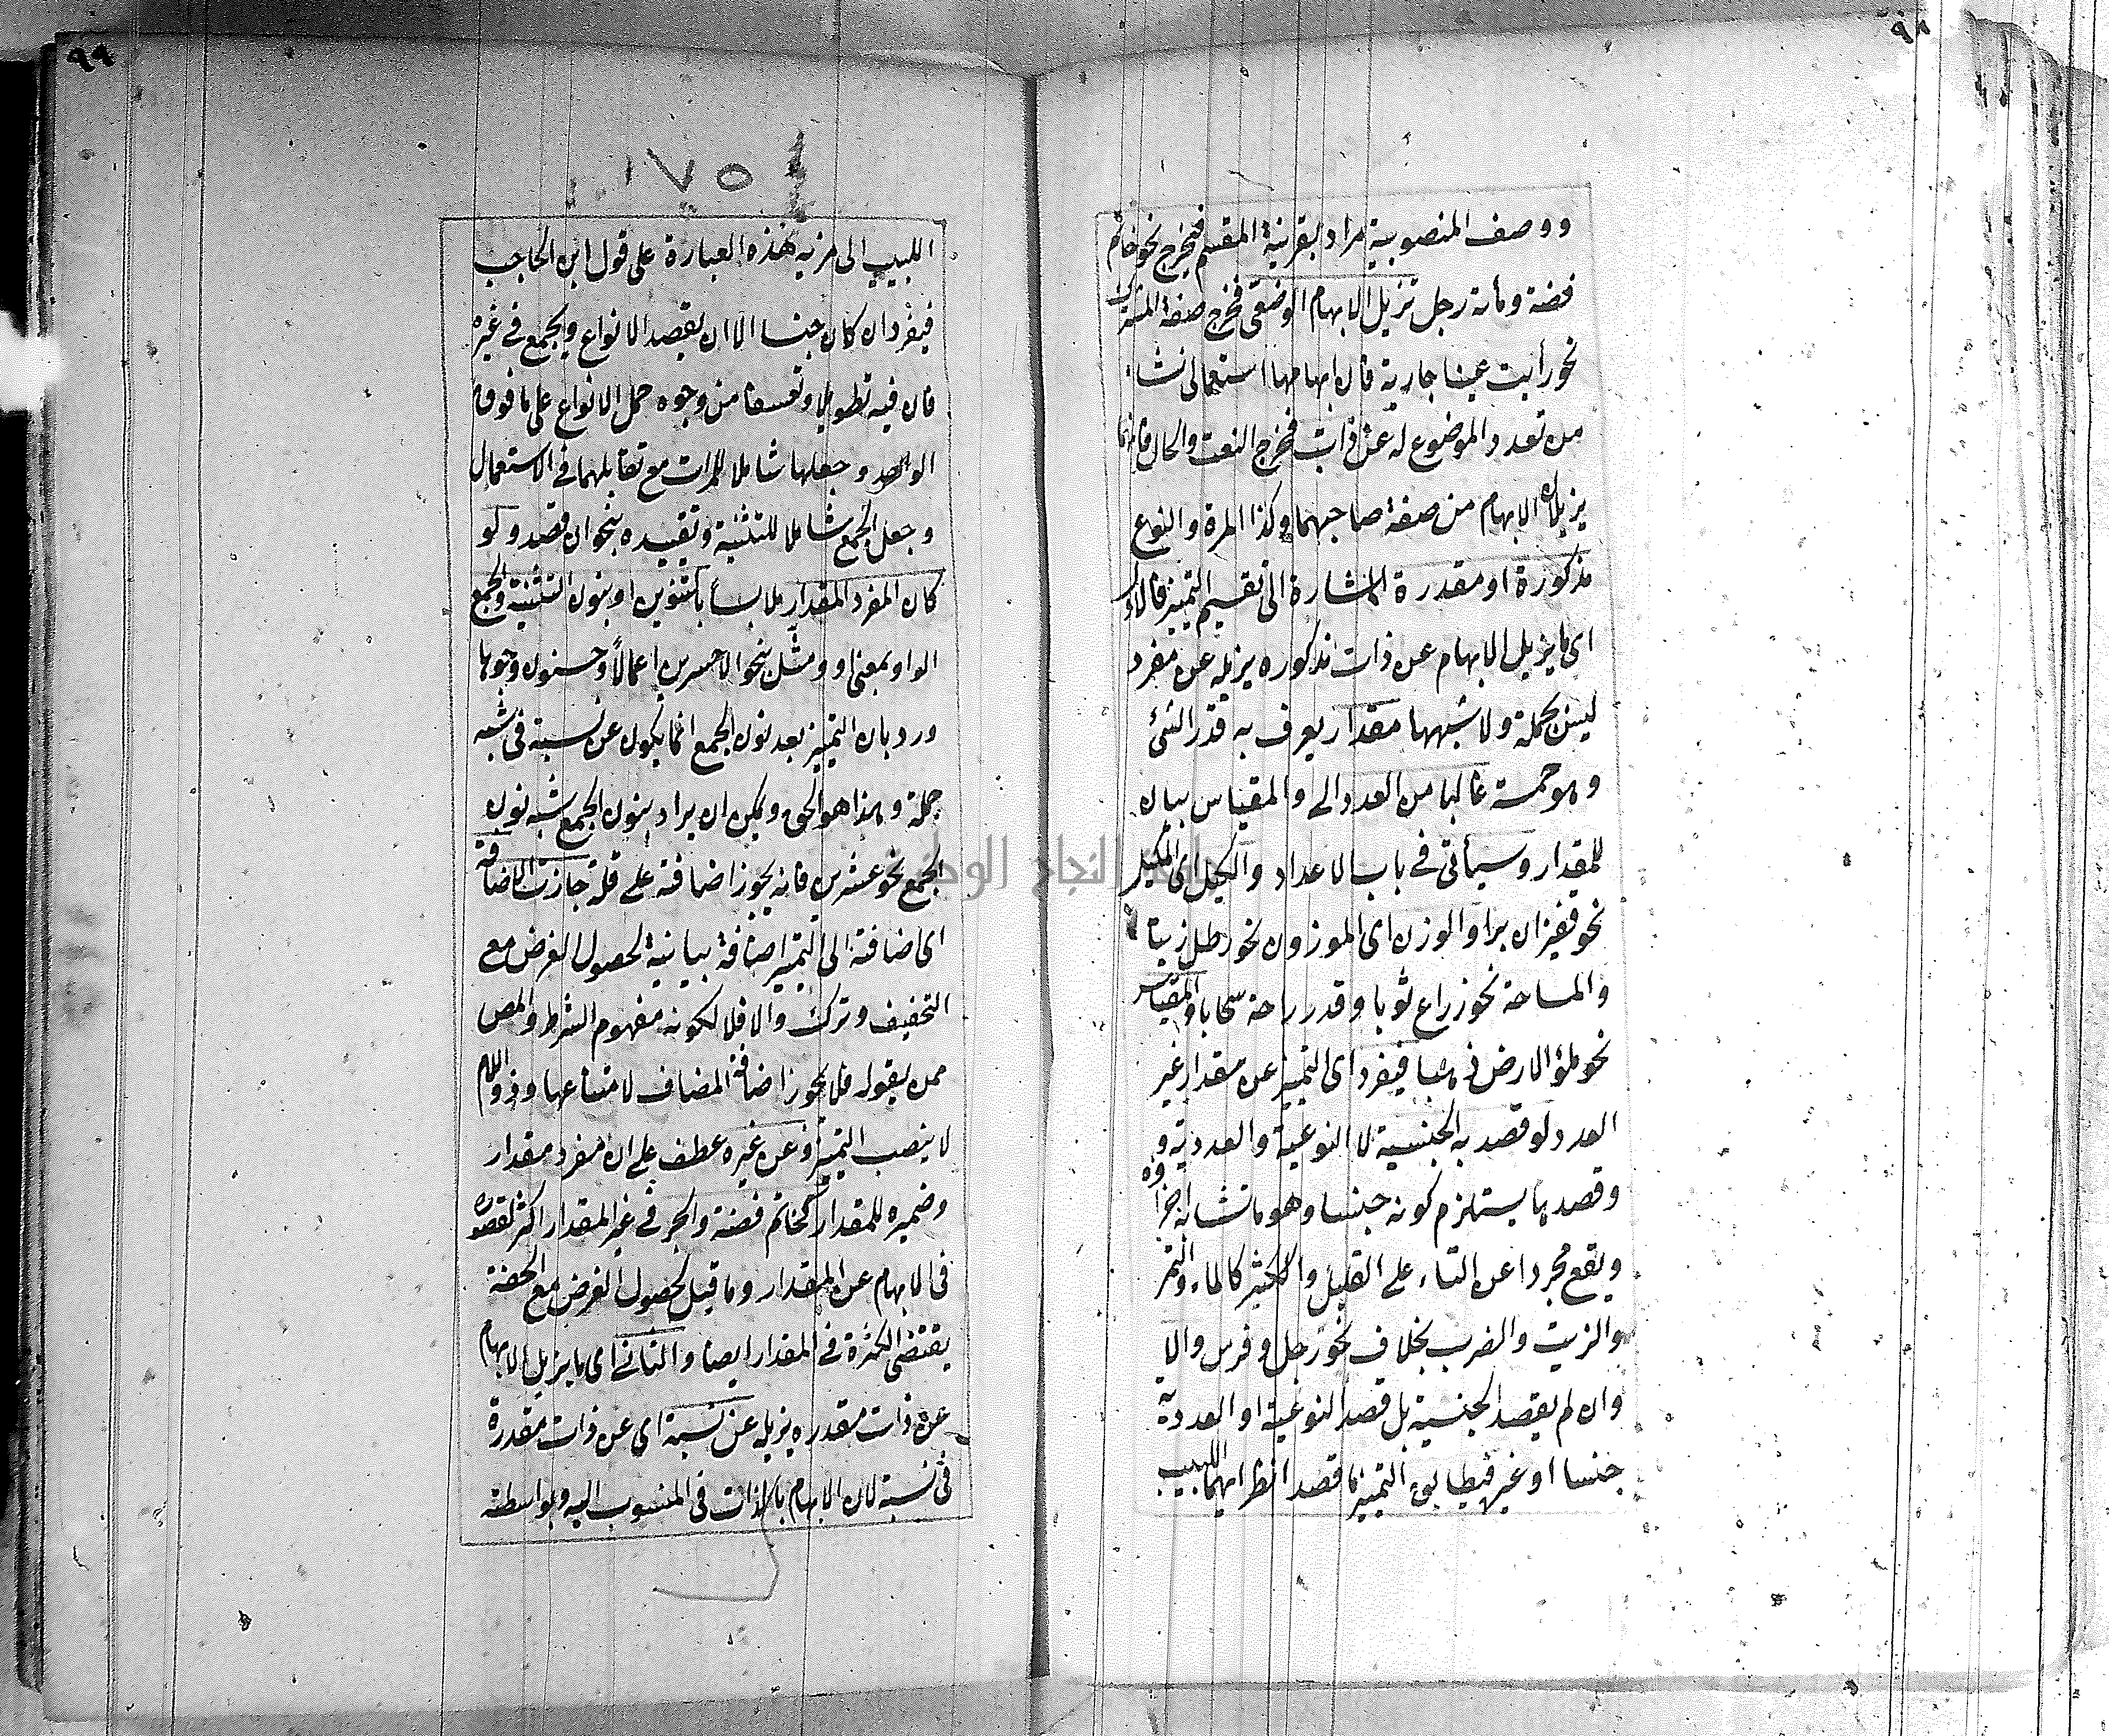 ٩٨
ووصف المنصوبية مراد بقرينة المقسم فيخرج نحو خاتم
فضة ومأة رجل تزيل الابهام الوضعى فخرج صفة المشترك
نحو رأيت عينا جارية فان ابهامها استعمالى نشا
من تعدد الموضوع له عن ذات فخرج النعت والحال فانهما
يزيلان الابهام من صفة صاحبهما وكذا المرة والنوع
مذكورة او مقدرة اشارة الى تقسيم التميز فالاول
اى ما يزيل الابهام عن ذات مذكوره يزيله عن مفرد
ليس بجملة ولا شبهها مقدار يعرف به قدر الشئ
وهو خمسة غالبا من العدد الى والمقياس بيان
للمقدار وسيأتى فى باب الاعداد والكيل اى المكيل
نحو قفيزان برا والوزن اى الموزون نحو رطل زيتا
والمساحة نحو زراع ثوبا وقدر راحة سحابا والمقياس
نحو ملؤ الارض ذهبا فيفرد اى التميز عن مقدار غير
العدد لو قصد به الجنسية لا النوعية والعددية و
وقصدها يستلزم كونه جنسا وهو ما تشابه اجزاؤه
ويقع مجردا عن التاء على القليل والكثير كالماء والتمر
والزيت والضرب بخلاف نحو رجل وفرس والا
وان لم يقصد الجنسية بل قصد النوعية او العددية
جنسا او غيره فيطابق التميز ما قصد انظر ايها اللبيب
٩٩
١٧٥
اللبيب الى مزية هذه العبارة على قول ابن الحاجب
فيفرد ان كان جنسا الا ان يقصد الانواع ويجمع فى غيره
فان فيه تطويلا وتعسفا من وجوه حمل الانواع على ما فوق
الواحد وجعلها شاملا للمرات مع تقابلهما فى الاستعمال
وجعل الجمع شاملا للتثنية وتقييده بنحو ان قصد ولو
كان المفرد المقدار ملابسا بالتنوين او بنون التثنية والجمع
الواو بمعنى او ومثل بنحو الاخسرين اعمالاً وحسنون وجوها
ورد بان التميز بعد نون الجمع انما يكون عن نسبة فى شبه
جملة وهذا هو الحق ويمكن ان يراد بنون الجمع شبه نون
الجمع نحو عشرين فانه يجوز اضافته على قلة جازت الاضافة
اى اضافته الى التميز اضافة بيانية لحصول الغرض مع
التخفيف وترك والا فلا لكونه مفهوم الشرط والمص
ممن يقوله فلا يجوز اضافة المضاف لامتناعها وذو اللام
لا ينصب التميز وعن غيره عطف على ان مفرد مقدار
وضميره للمقدار كخاتم فضة والجر فى غير المقدار اكثر لقصوره
فى الابهام عن المقدار وما قيل لحصول الغرض مع الخفة
يقتضى الكثرة فى المقدار ايضا والثانى اى ما يزيل الابهام
عن ذات مقدره يزيله عن نسبة اى عن ذات مقدرة
فى نسبة لان الابهام بالذات فى المنسوب اليه وبواسطته